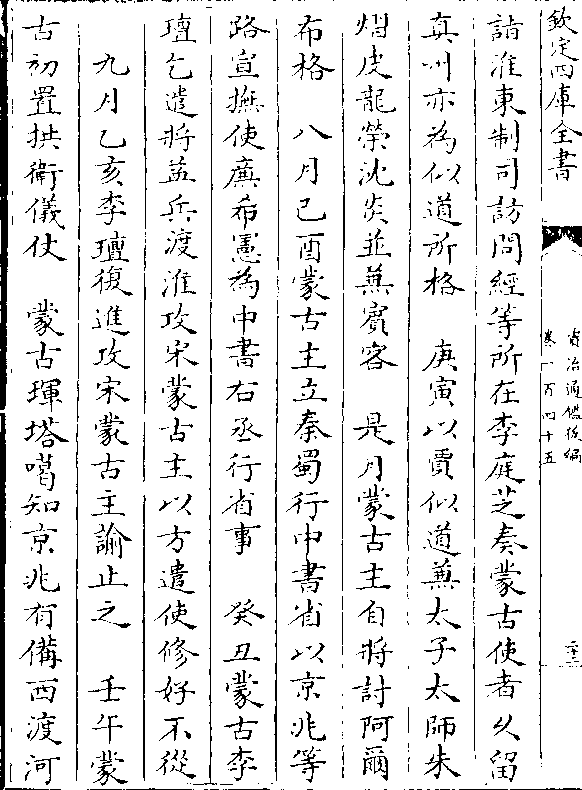 欽定四庫全書
資治通鑑後編
卷一百四十五
二十二
詰淮東制司訪問經等所在李庭芝奏蒙古使者久留
真州亦為似道所格　庚寅以賈似道兼太子太師朱
熠皮龍榮沈炎並兼賓客　是月蒙古主自將討阿爾
布格　八月己酉蒙古主立秦蜀行中書省以京兆等
路宣撫使廉希憲為中書右丞行省事　癸丑蒙古李
璮乞遣將益兵渡淮攻宋蒙古主以方遣使修好不從
九月乙亥李璮復進攻宋蒙古主諭止之　壬午蒙
古初置拱衛儀仗　蒙古琿塔噶知京兆有備西渡河